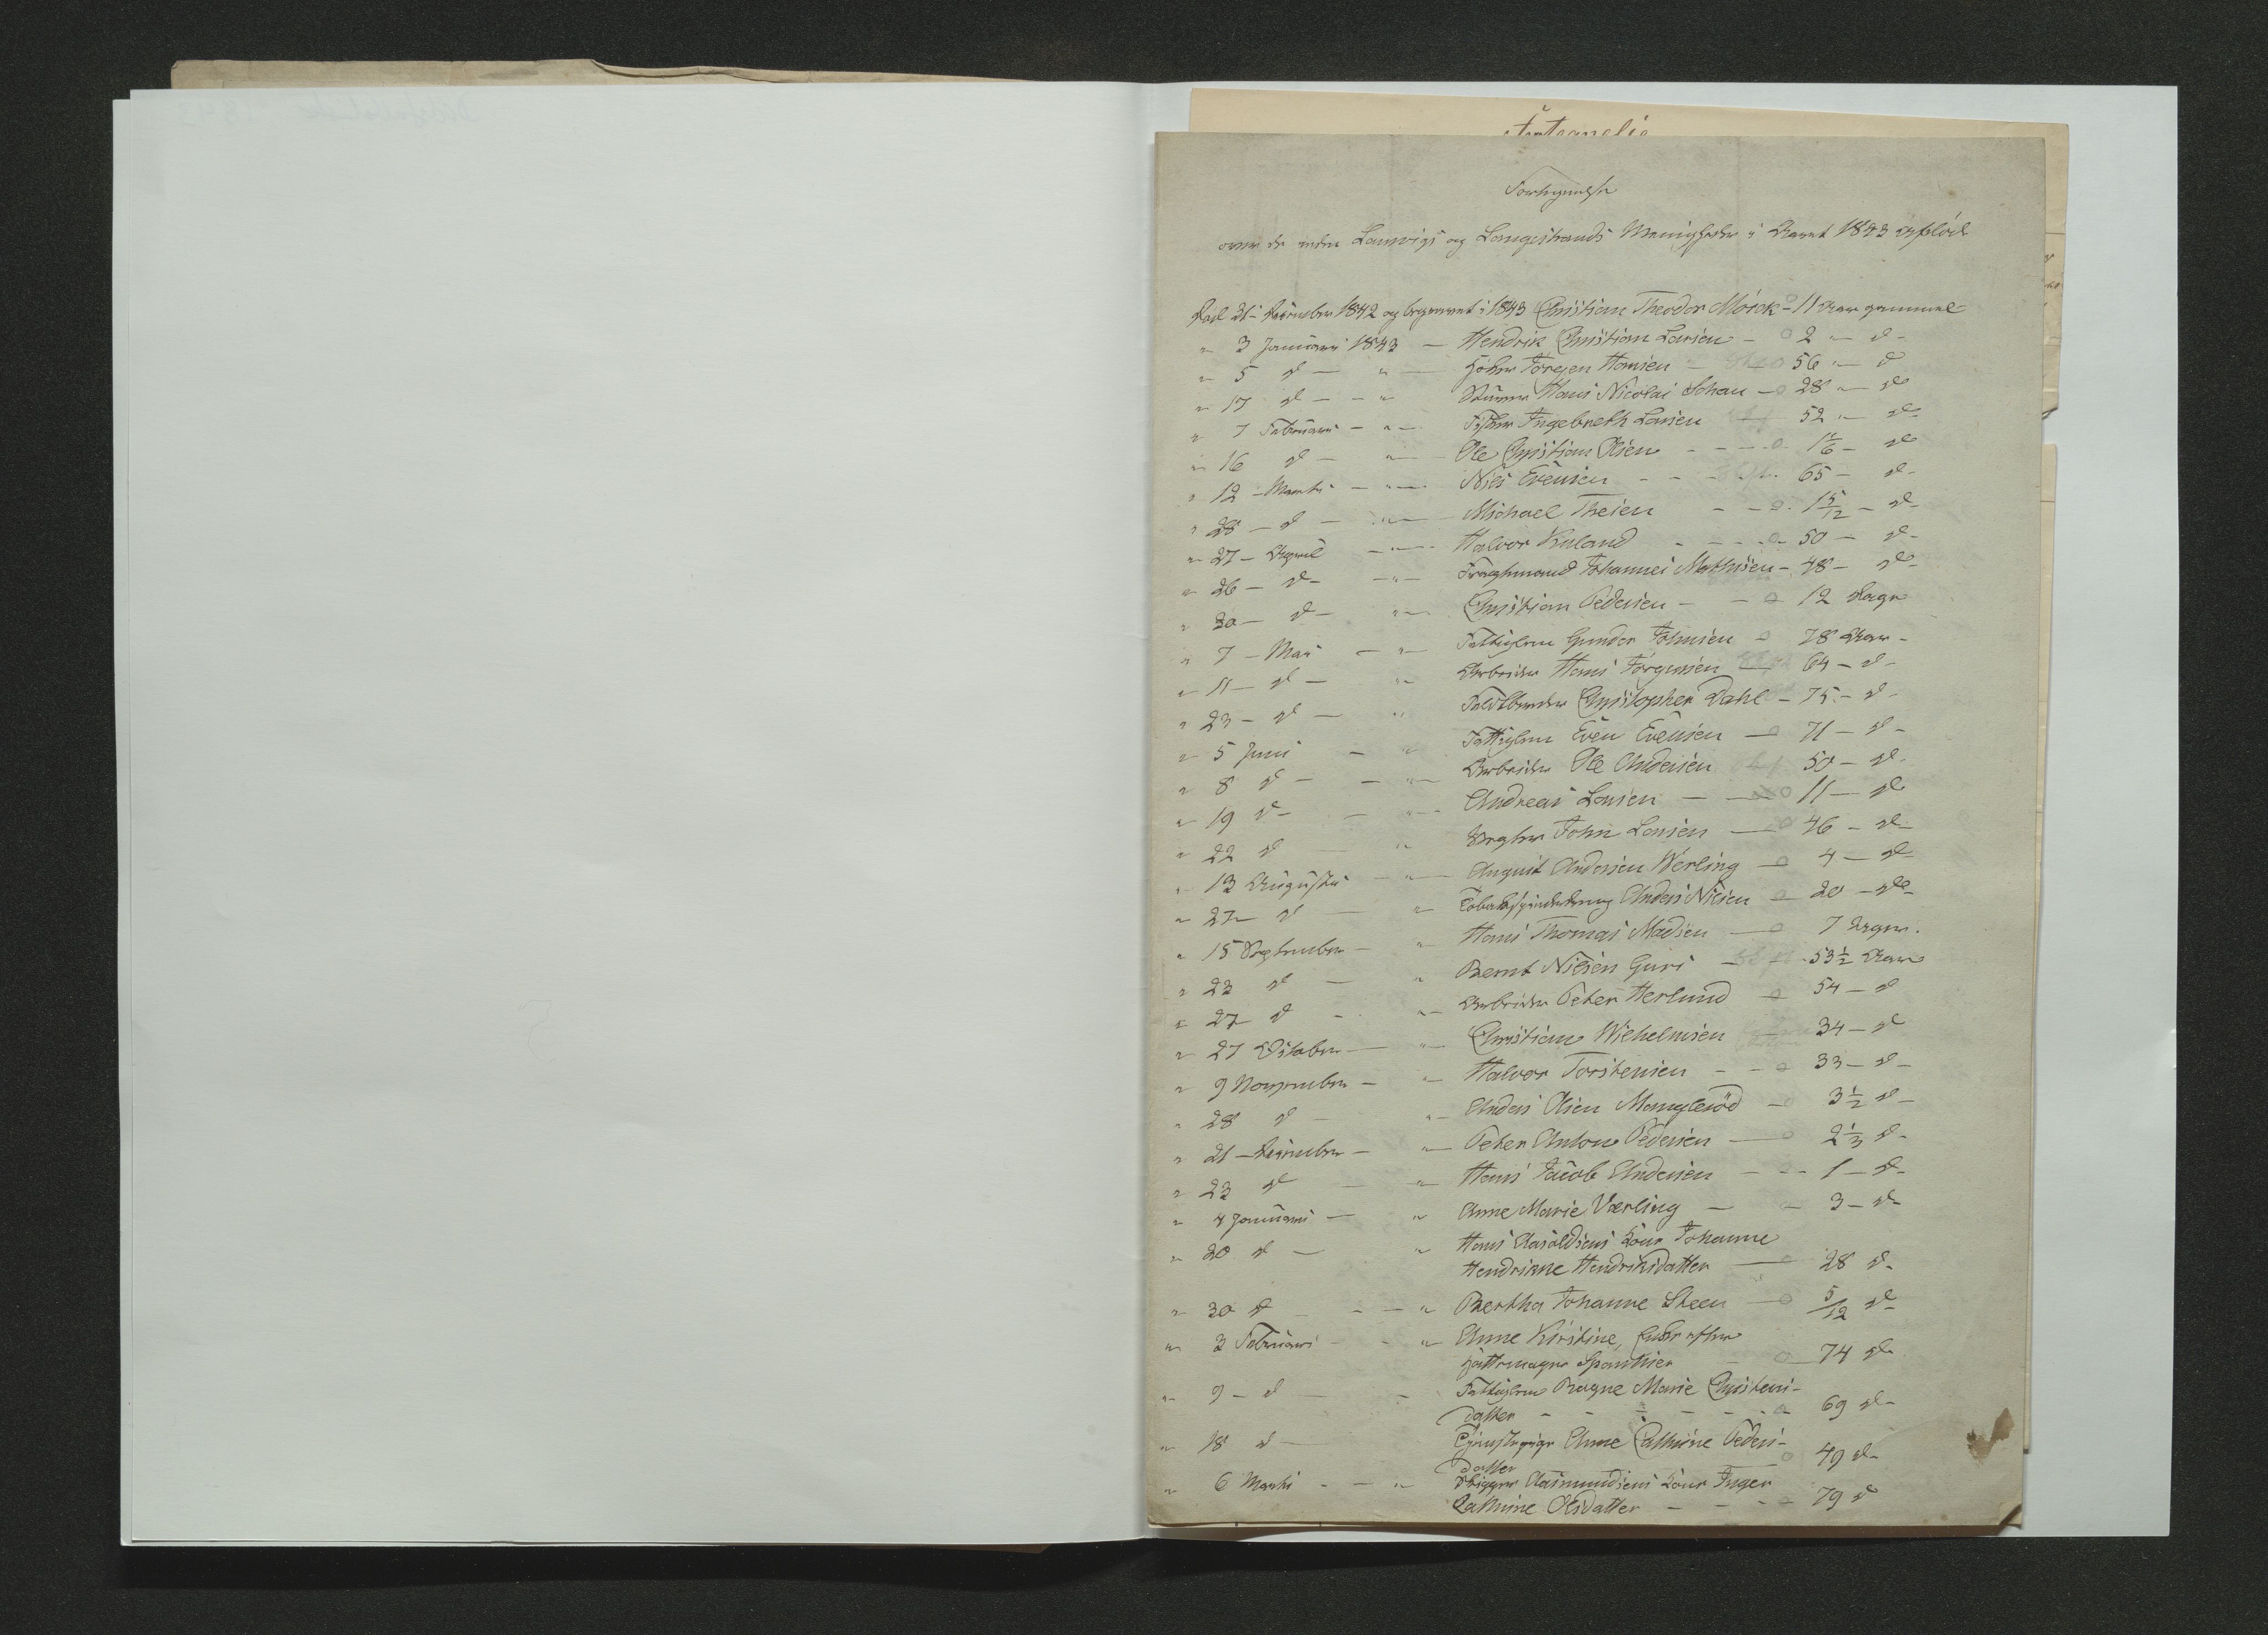 Fortegnelse
over de inden Laurvigs og Langestrands Menigheder i Aaret 1843 afdöde
Död 31 December 1842 og begravet i 1843 Christian Theodor Mörck - 11 Aar gammel
" 3 Januari 1843 - Hendrik Christian Larsen - 2 " d -
" 5 d - " - Jörgen Hansen - 56 " d
" 17 d - - " Hans Nicolai Schau - 28 " d
" 7 Februari - " - Fisker Ingebreth Larsen 52 " d -
" 16 d - " - Ole Christian Olsen - - - 1/6 - d
" 12 - Martii - " - Niels Evensen - - - 65 - d -
" 28 - d - " - Michael Theisen - - 1 5/12 - d -
" 27 - April - " - Halvor Kuland - - - 50 - d -
" 26 - d - - " - Johannes Mathisen - 48 - d -
" 30 - d - " - Christian Pedersen - - 12 Dage
" 7 - Mai - " - Fattiglem Gunder Johnsen - 78 Aar -
" 11 - d - " Arbeider Hans Jörgensen - 64 - d -
" 23 - d - " Christopher Dahl - 75 - d -
" 5 Juni - " Fattiglem Even Evensen - 71 - d -
" 8 d - - " - Arbeider Ole Andersen 50 - d -
" 19 d - - " - Andreas Larsen - - 11 - d
" 22 d - " John Larsen - 46 - d -
" 13 Augusti - " - August Andersen Werling - 4 - d -
" 27 d - " Tobakspinderdreng Anders Nilsen - 20 - d -
" 15 September - " Hans Thomas Madsen - 7 Uger.
" 23 d - " Bernt Nilsen Guri - 53 1/2 Aar
" 27 d - " - Arbeider Peter Herlund - 54 - d
" 27 October - " - Christian Wilhelmsen 34 - d
" 9 November - " - Halvor Torstensen - - 33 - d -
" 28 d - " - Anders Olsen Mangleröd - 3 1/2 d -
" 21 - December - " - Peter Anton Pedersen - 2 1/3 d -
" 23 d - " - Hans Jacob Andersen - - - 1 - d -
" 4 Januari - " - Anne Marie Værling - - 3 - d -
" 20 d - " Hans Aasoldsens Kone Johanne
Hendrikke Hendriksdatter - 28 d -
" 30 d - - " Bertha Johanne Steen - 5/12 d -
" 3 Februari - - " Anne Kirstine, Enke efter
Hattemager - 74 d
" 9 - d - - Fattiglem Ragne Marie Christens-
datter - - - - - - 69 d -
" 18 d - Tjenestepige Anne Cathrine Peders-
datter 49 d -
" 6 Martii - - " Aasmundsens Kone Inger
Cathrine Olsdatter - - - - 79 d